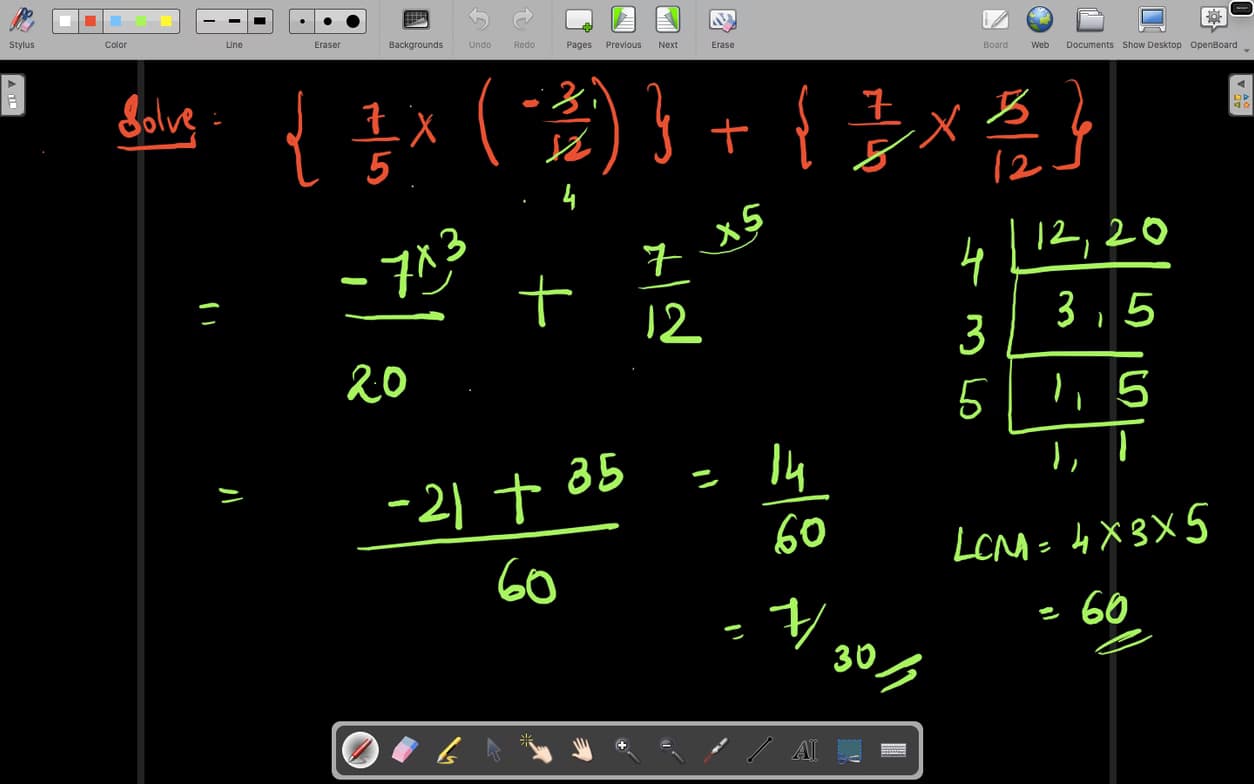 Stylus Color Line Eraser Backgrounds Undo Redo Pages Previous Next Erase Board Web Documents Show Desktop OpenBoard
Solve: { 7/5 × ( -3/12 ) } + { 7/5 × 5/12 }
1
4
= -7×3/20 + 7/12 ×5
= -21 + 35/60 = 14/60
= 7/30
4 | 12, 20
3 | 3, 5
5 | 1, 5
1, 1
LCM = 4×3×5
= 60
AI